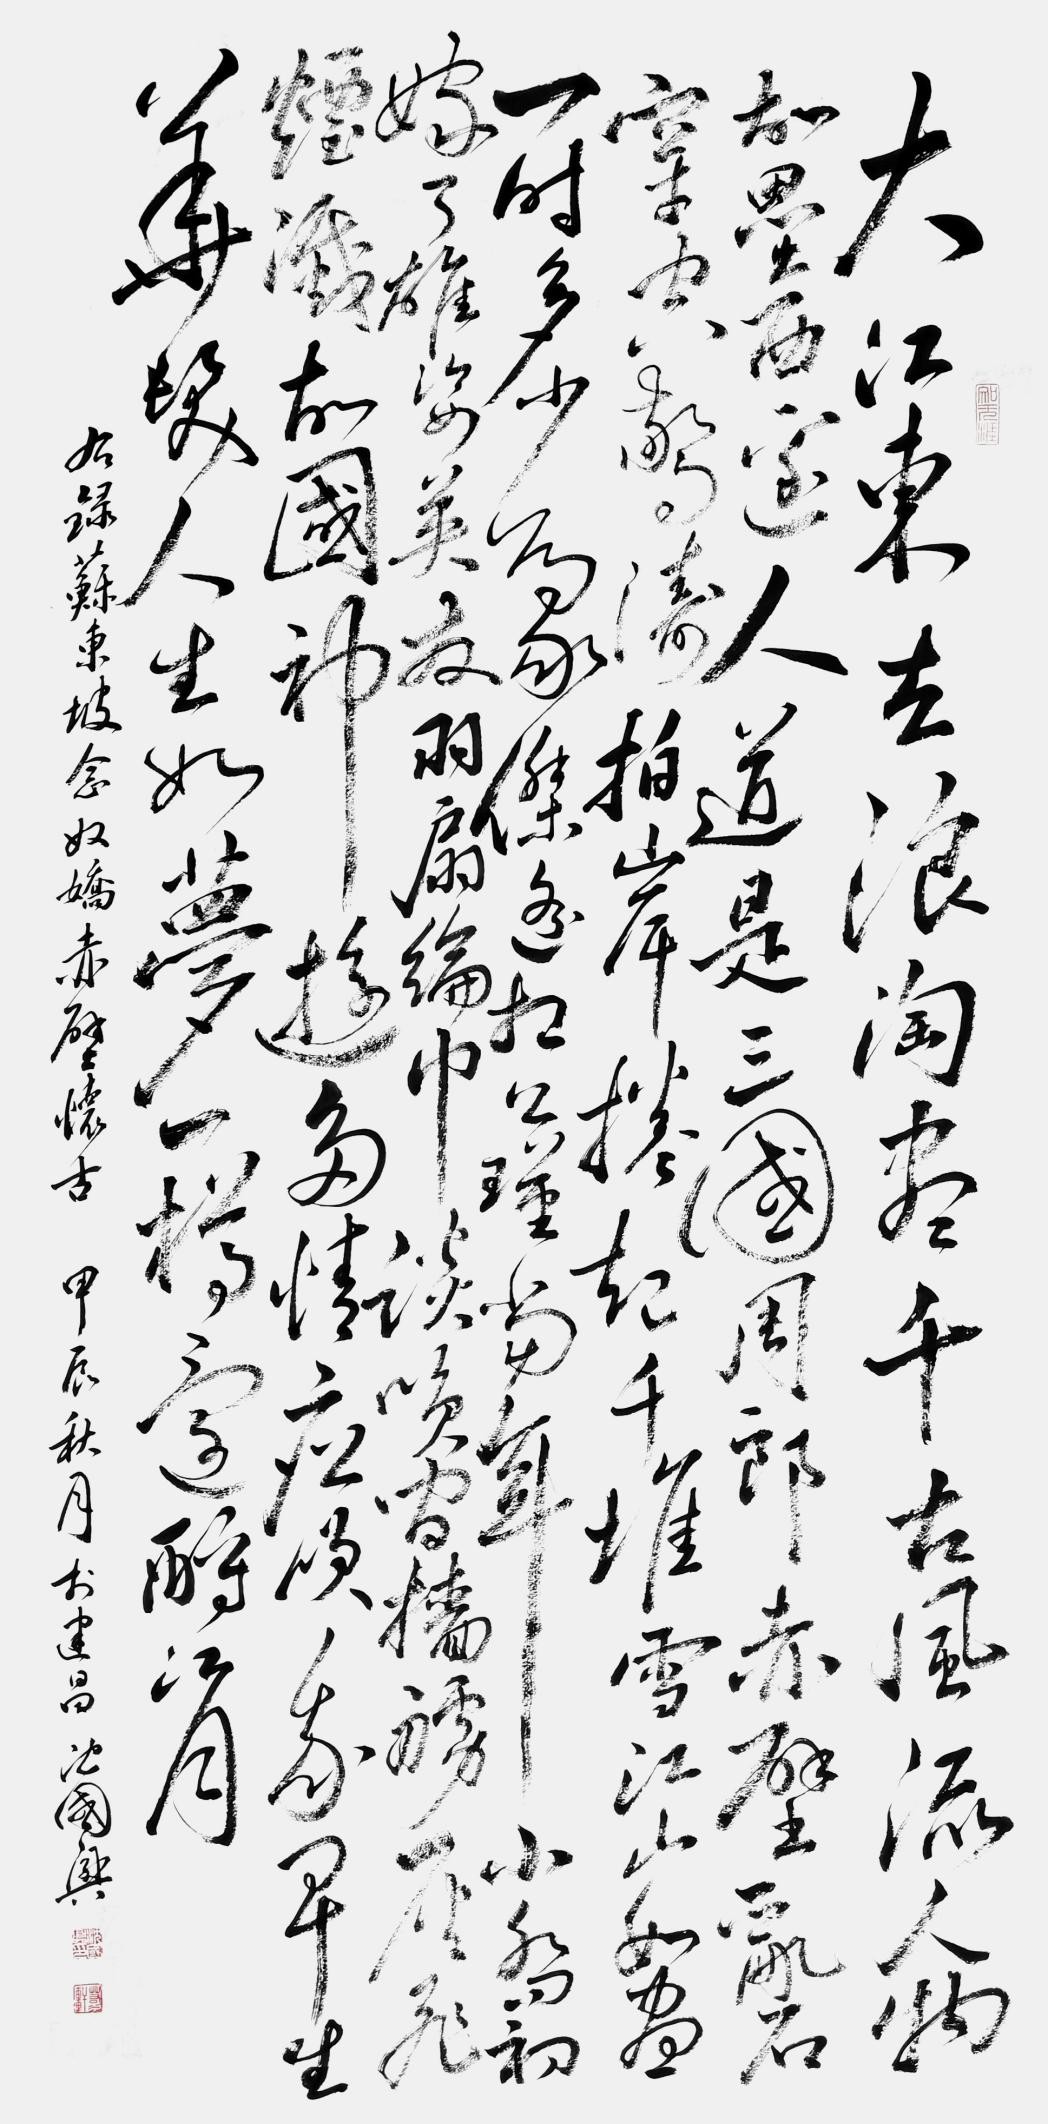 大江東去浪淘盡千古風流人物
故壘西邊人道是三國周郎赤壁亂石
穿空驚濤拍岸捲起千堆雪江山如畫
一時多少豪傑遙想公瑾當年小喬初
嫁了雄姿英發羽扇綸巾談笑間檣艣灰飛
煙滅故國神遊多情應笑我早生
華髮人生如夢一樽還酹江月
右錄蘇東坡念奴嬌赤壁懷古 甲辰秋月於建昌沈國興
知无涯